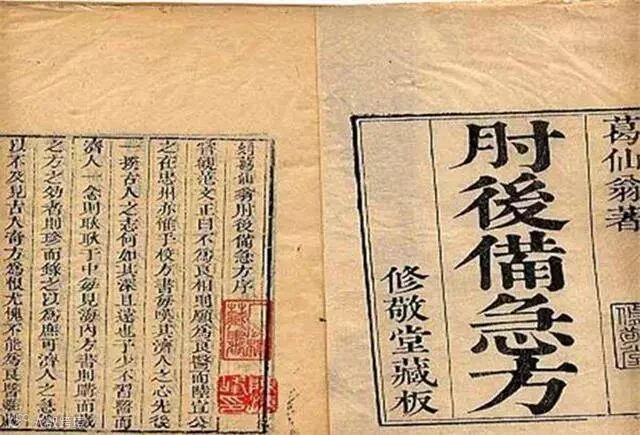 葛仙翁著
肘後備急方
修敬堂藏板
葛仙翁肘後備急方序
嘗觀范文正曰不為良相則願為良醫而陸宣公
之在忠州亦惟手校方書每嘆其濟人之心先後
一揆古人之志何如其深且遠也予少不習醫而
濟人一念則耿耿于中每見海內方書則購而藏
之方之効者則珍而錄之以為庶可濟人之急
以不及見古人奇方為恨尤愧不能為良醫